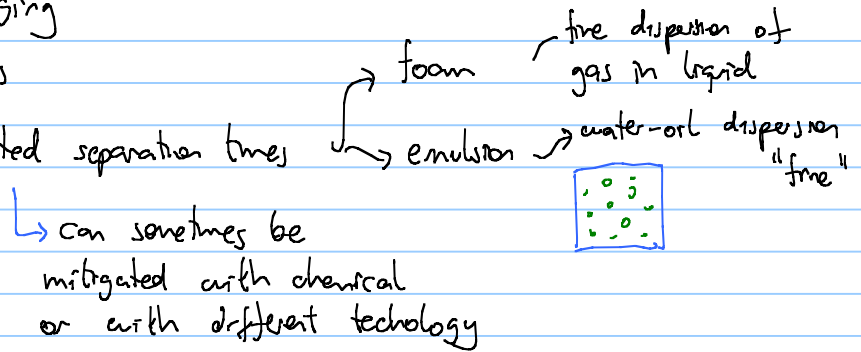 sing
foam
fine dispersion of
gas in liquid
ted separation times
emulsion
water-oil dispersion
"fine"
can sometimes be
mitigated with chemical
or with different techology